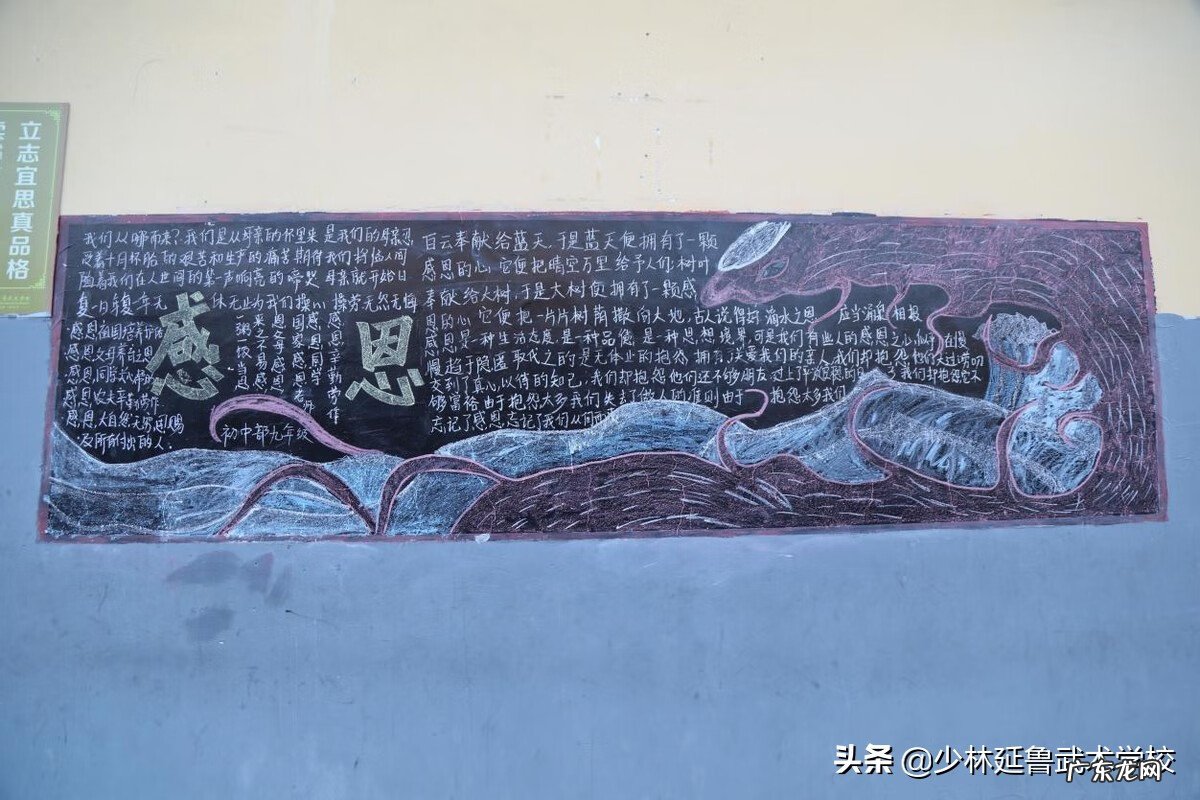 立志宜思真品格
我们从哪而来?我们是从母亲的怀里来是我们的母亲忍
受着十月怀胎的艰苦和生产的痛苦期待我们
随着我们在人世间的第一声响亮的啼哭母亲就开始日
复一日年复一年无休无止为我们操心操劳无怨无悔
感恩
感恩祖国培育
感恩父母养育之恩
感恩同学
感恩农夫辛勤劳作
感恩大自然无穷恩赐
及所有付出的人.
一粥一饭当思
来之不易感恩
国家感恩老师
感恩同学
感恩辛勤劳作
初中部九年级
白云奉献给蓝天,于是蓝天便拥有了一颗
感恩的心,它便把晴空万里给予人们;树叶
奉献给大树,于是大树便拥有了一颗感
恩的心 它便把一片片树荫撒向大地,古人说得好 滴水之恩 应当涌泉相报
感恩是一种生活态度,是一种品德,是一种思想境界,可是我们有些人的感恩之心似乎在慢
慢趋于隐匿 取代之的是无休止的抱怨,拥有关爱我们的亲人我们却抱怨他们太过唠叨
交到了真心以待的知己,我们却抱怨他们还不够朋友过上了
够富裕由于抱怨太多我们失去了做人的准则由于 抱怨太多我们
忘记了感恩忘记了我们从何而来
头条 @少林延鲁武术学校
广东龙网